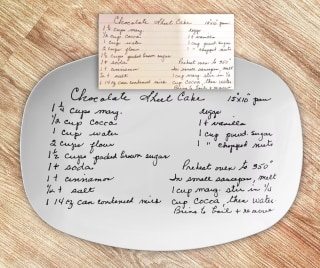 Chocolate Sheet Cake 15x10" pan
1 1/4 cups marg. eggs
1/2 cup cocoa 1 t vanilla
1 cup water 1 cup powd sugar
2 cups flour 1 " chopped nuts
1 1/2 cups packed brown sugar
1 t soda Preheat oven to 350°
1 t cinnamon In small saucepan, melt
t salt 1 cup marg. stir in
1 14 oz can condensed milk cup cocoa, then water
Bring to boil +
Chocolate Sheet Cake 15x10" pan
1 1/4 cups marg. eggs
1/2 cup cocoa 1 t vanilla
1 cup water 1 cup powd. sugar
2 cups flour 1 " chopped nuts
1 1/2 cups packed brown sugar
1 t soda Preheat oven to 350°
1 t cinnamon In small saucepan, melt
t salt 1 cup marg. stir in
1 14 oz can condensed milk cup cocoa, then water.
Bring to boil +